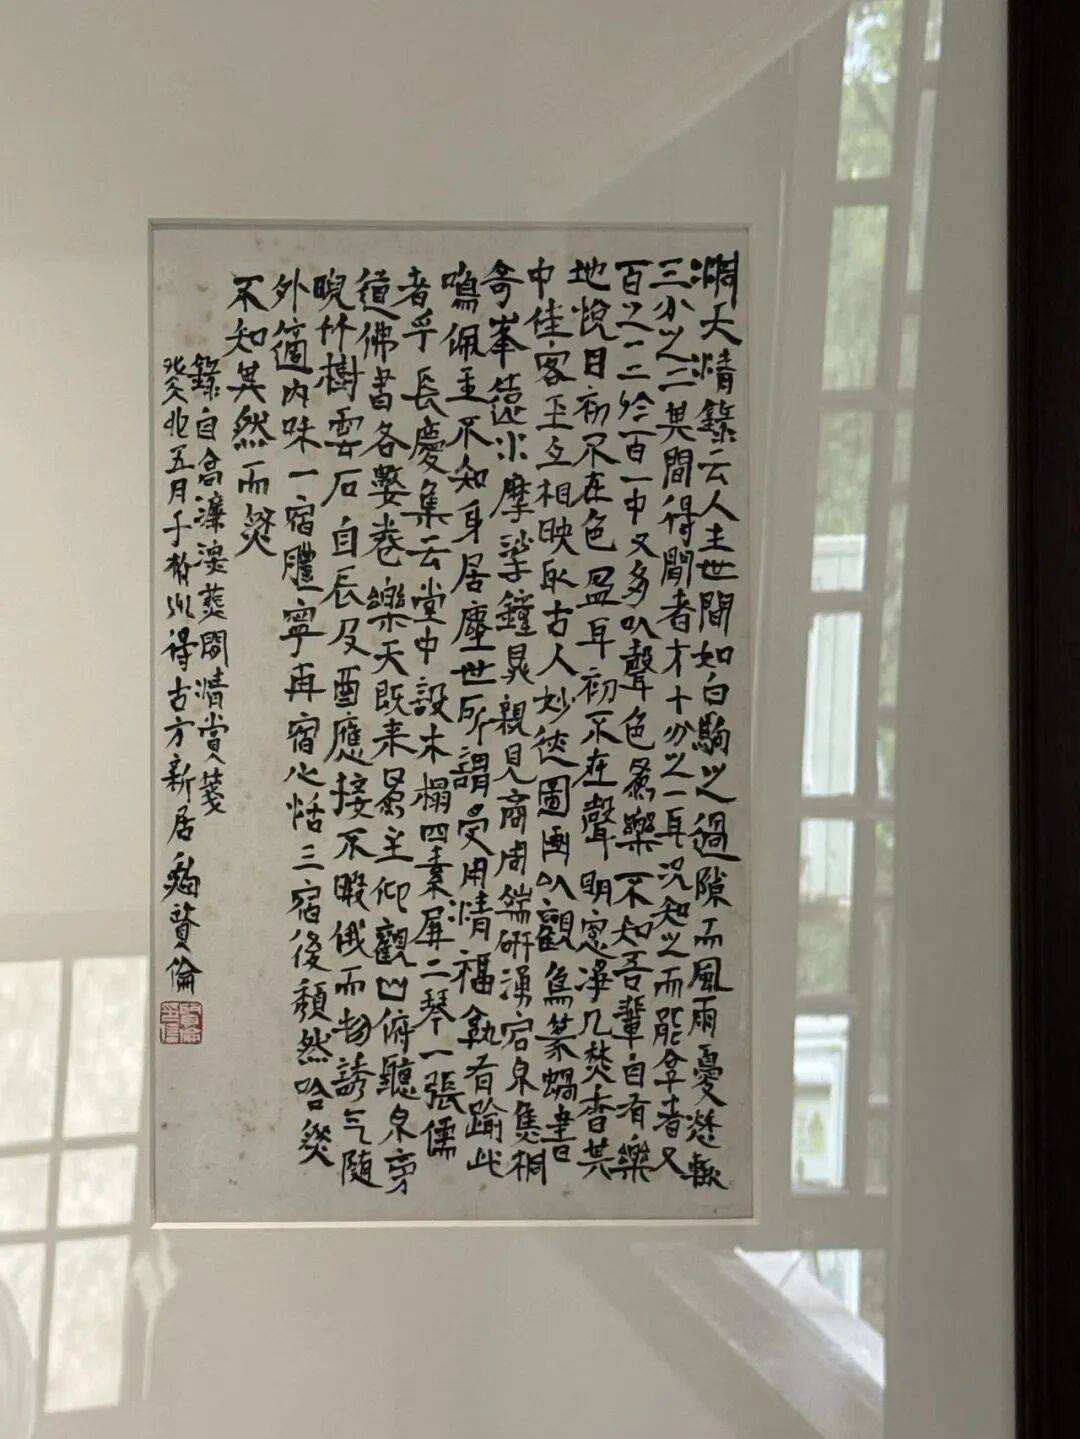 洞天清錄云人生世間如白駒之過隙而風雨憂愁輒
三分之二其間得閒者才十分之一耳況知之而能享者又
百之一二於百一中又多以聲色爲樂不知吾輩自有樂
地悅目初不在色盈耳初不在聲明窓淨几焚香其
中佳客玉立相映取古人妙迹圖畫以觀鳥篆蝸書
奇峯遠水摩挲鐘鼎親見商周端研湧岩泉焦桐
鳴佩玉不知身居塵世所謂受用清福孰有踰此
者乎長慶集云堂中設木榻四素屏二琴一張儒
道佛書各數卷樂天既來爲主仰觀山俯聽泉旁
睨竹樹雲石自辰及酉應接不暇俄而物誘气隨
外適内味一宿體寧再宿心恬三宿後頹然嗒然
不知其然而然
錄自高濂燕閒清賞箋
癸丑五月于 得古方新居 贊倫